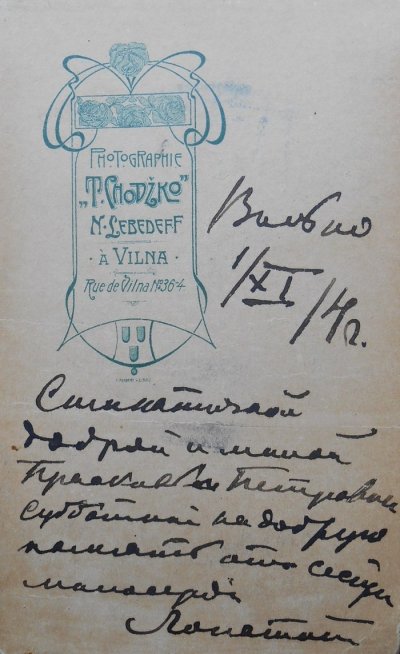 PHOTOGRAPHIE
"T. CHODŹKO"
N. LEBEDEFF
À VILNA
Rue de Vilna №36-4
Вильно
1/XI/14г.
Симпатичной
доброй и милой
Прасковьи Петровны
Субботиной на добрую
память отъ сестры
милосердія